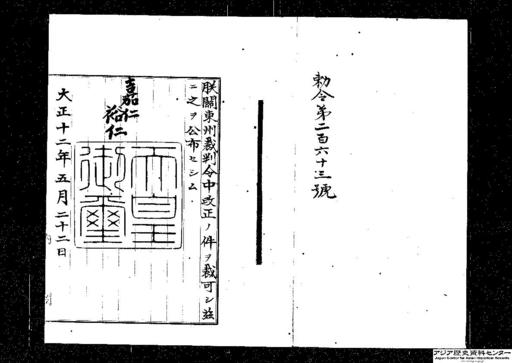 勅令第二百六十三號
朕關東州裁判令中改正ノ件ヲ裁可シ茲
ニ之ヲ公布セシム
嘉仁
裕仁
天皇
御璽
大正十二年五月二十二日
アジア歴史資料センター
Japan Center for Asian Historical Records